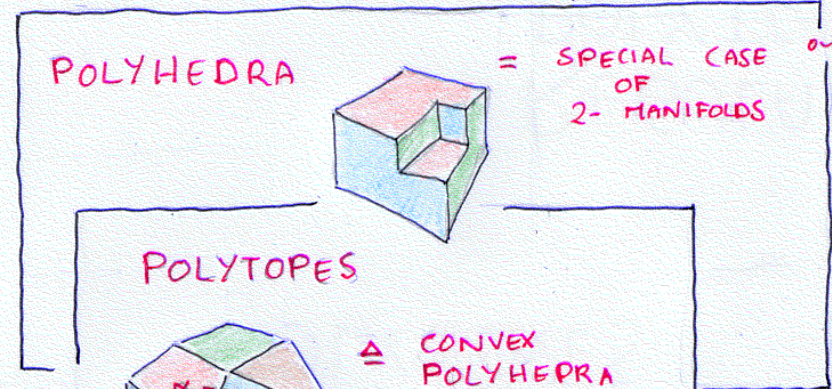 POLYHEDRA
= SPECIAL CASE
OF
2- MANIFOLDS
POLYTOPES
≜ CONVEX
POLYHEDRA